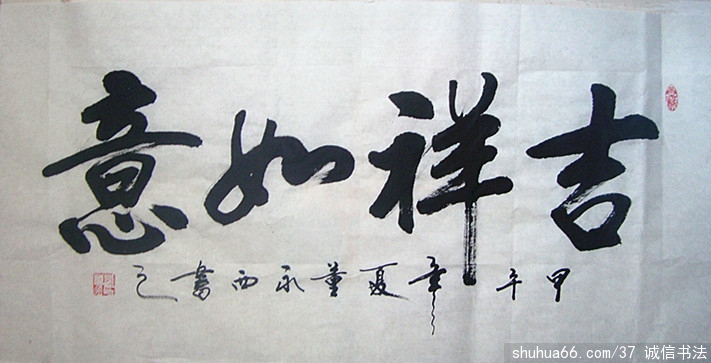 吉祥如意
甲午年夏董永西書之
shuhua66.com/37 诚信书法